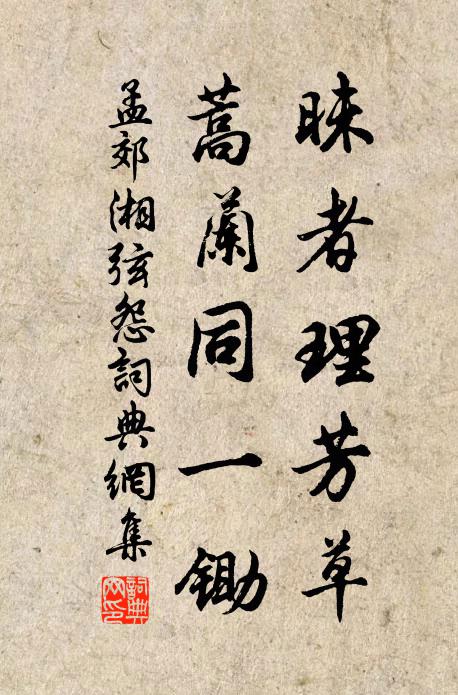 昧者理芳草
蒿蘭同一鋤
孟郊湘弦怨詞典網集
詞典網印